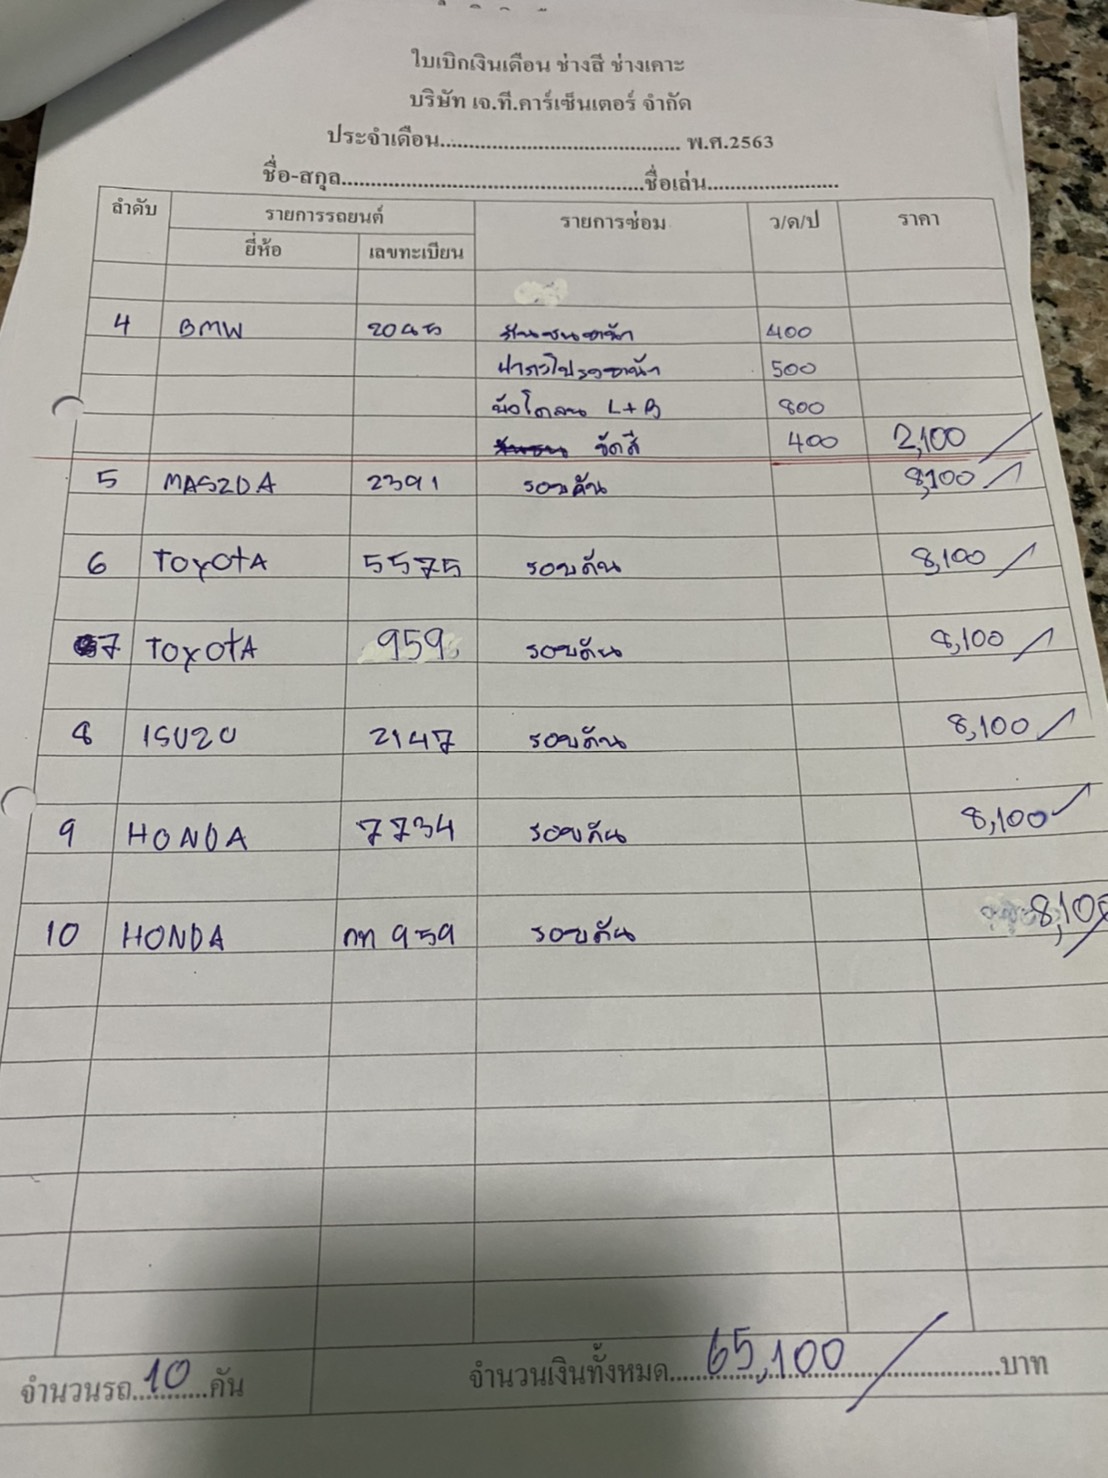 ใบเบิกเงินเดือน ช่างสี ช่างเคาะ
บริษัท เจ.ที.คาร์เซ็นเตอร์ จำกัด
ประจำเดือน.......................................... พ.ศ.2563
ชื่อ-สกุล.....................................................ชื่อเล่น.......................
ลำดับ รายการรถยนต์ รายการซ่อม ว/ด/ป ราคา
ยี่ห้อ เลขทะเบียน
4 BMW 400
ฝากระโปรงหน้า 500
L+R 800
ขัดสี 400 2,100
5 MASZDA 2391 รอบคัน 8,100
6 ToyotA 5575 รอบคัน 8,100
7 ToyotA 959 รอบคัน 8,100
8 ISUZU 2147 รอบคัน 8,100
9 HONDA 7734 รอบคัน 8,100
10 HONDA กท 959 รอบคัน 8,100
จำนวนรถ...10...คัน จำนวนเงินทั้งหมด......65,100......บาท